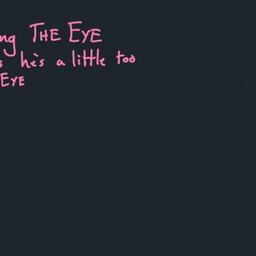 ng THE EYE
s he's a little too
EYE